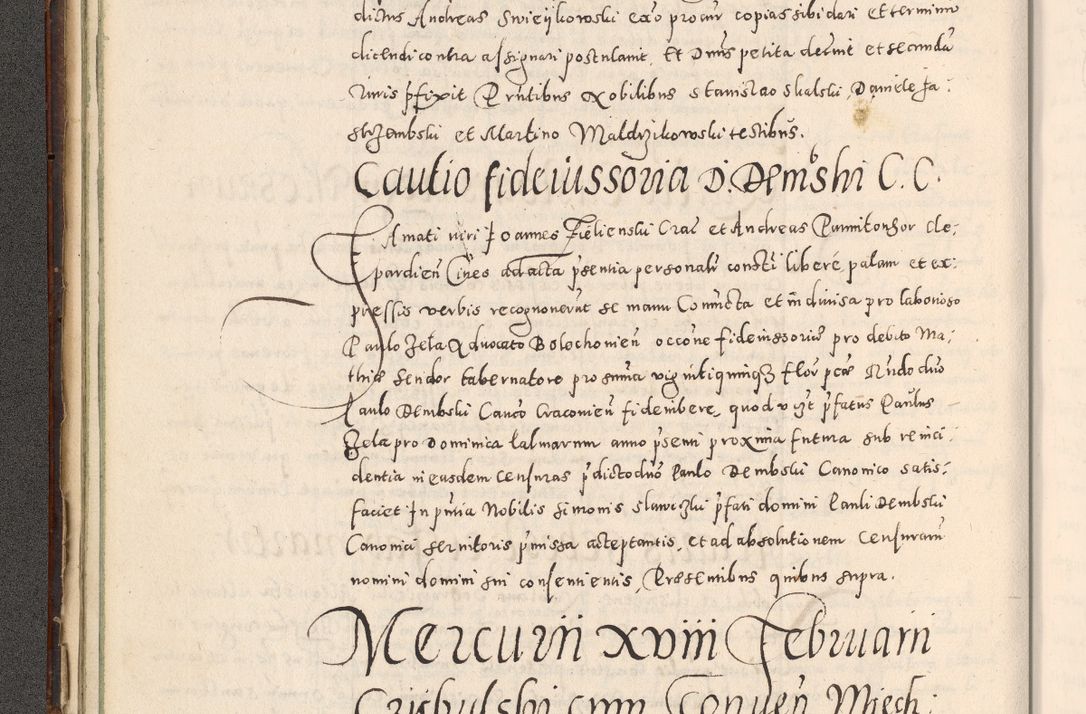 dictus Andreas Swieykowski exo procur copias sibi dari Et terminũ
dicendi contra assignari postulauit, Et Dnus petita decreuit et secundũ
Iuris pfixit Pñtibus Nobilibus Stanislao Skalski, Daniele Ja:
strzembski et Martino Maldrzikowski testibus.
Cautio fideiussoria D. Demᵇski C. C.
Famati viri Joannes Zielienski Crac et Andreas Pannitonsor Cle:
pardień Ciues ad acta psentia personalr constti libere, palam et ex:
pressis verbis recognouerũt se manu Coniuncta et indiuisa pro laborioso
Paulo Zela Aduocato Bolochouień occone fideiussoriæ pro debito Ma:
thiæ Sendor tabernatore pro summa viginti quinqꝫ flor pcæ Rndo dño
Paulo Dembski Canco Cracouień fideiubere, quod vigt pfatus Paulus
Zela pro Dominica Palmarum anno psenti proxima futura sub reinci:
dentia in easdem censuras pdicto dño Paulo Dembski Canonico satis:
faciet In pñtia Nobilis Simonis Slawiczki pfati domini Pauli Dembski
Canonici seruitoris pmissa acceptantis, et ad absolutionem censurarũ
nomini domini sui consentientis, Præsentibus quibus supra.
Mercurii xviii Februarii
Crisbulski cum Conuen Miech: